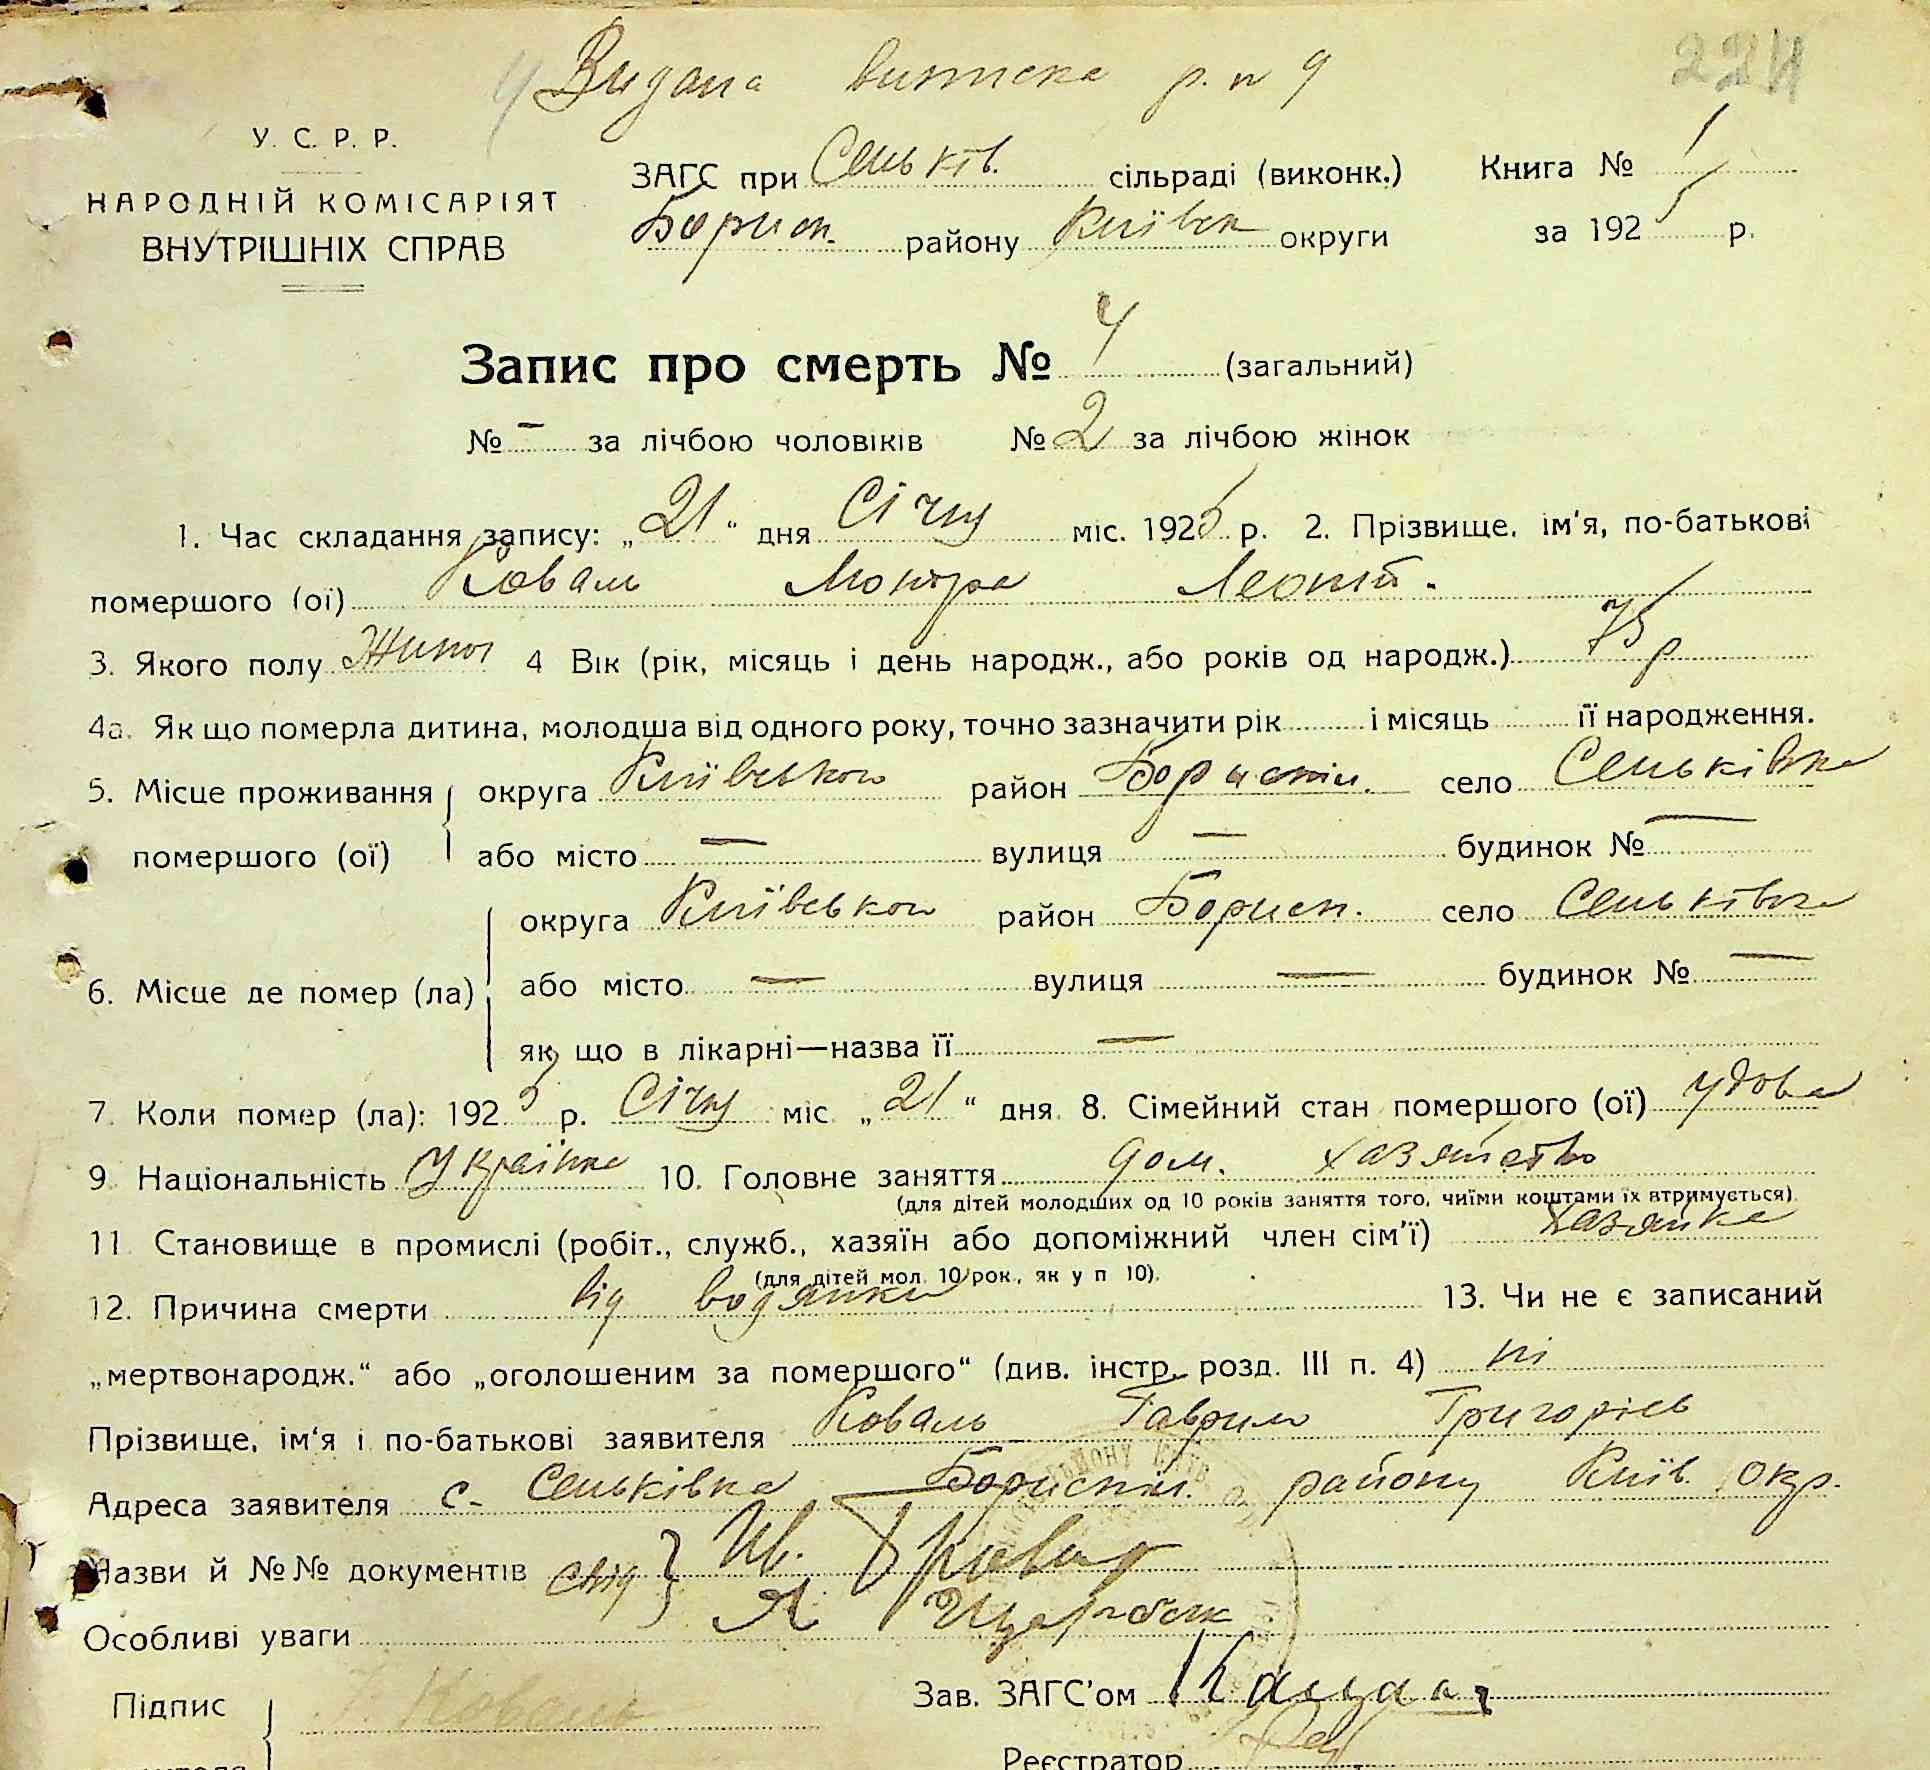 Видана виписка р. н 9
224
У. С. Р. Р.
НАРОДНІЙ КОМІСАРІЯТ
ВНУТРІШНІХ СПРАВ
ЗАГС при Сеньків. сільраді (виконк.)
Борисп. району Київськ округи
Книга № 1
за 1925 р.
Запис про смерть № 4 (загальний)
№ — за лічбою чоловіків № 2 за лічбою жінок
1. Час складання запису: „21“ дня Січня міс. 1925 р. 2. Прізвище, ім'я, по-батькові
помершого (ої) Коваль Мотря Леонтії.
3. Якого полу Жіноч 4 Вік (рік, місяць і день народж., або років од народж.) 75 р
4а. Як що померла дитина, молодша від одного року, точно зазначити рік і місяць її народження.
5. Місце проживання помершого (ої) округа Київською район Бориспіл. село Сеньківка
або місто — вулиця — будинок № —
6. Місце де помер (ла) округа Київською район Борисп. село Сеньківка
або місто — вулиця — будинок № —
як що в лікарні—назва її —
7. Коли помер (ла): 1925 р. Січня міс „21“ дня 8. Сімейний стан помершого (ої) удова
9. Національність Українка 10. Головне заняття дом. хазяйство
(для дітей молодших од 10 років заняття того, чиїми коштами їх втримується)
11 Становище в промислі (робіт., служб., хазяїн або допоміжний член сім'ї) хазяйка
(для дітей мол. 10 рок., як у п 10).
12. Причина смерти від водянки 13. Чи не є записаний
„мертвонародж.“ або „оголошеним за помершого“ (див. інстр. розд. III п. 4) ні
Прізвище, ім'я і по-батькові заявителя Коваль Гаврило Григоріев
Адреса заявителя с. Сеньківка Бориспіл. району Київ. окр.
Назви й №№ документів свід } Ів.
Я
Особливі уваги
Підпис Коваль
Зав. ЗАГС'ом
Реєстратор